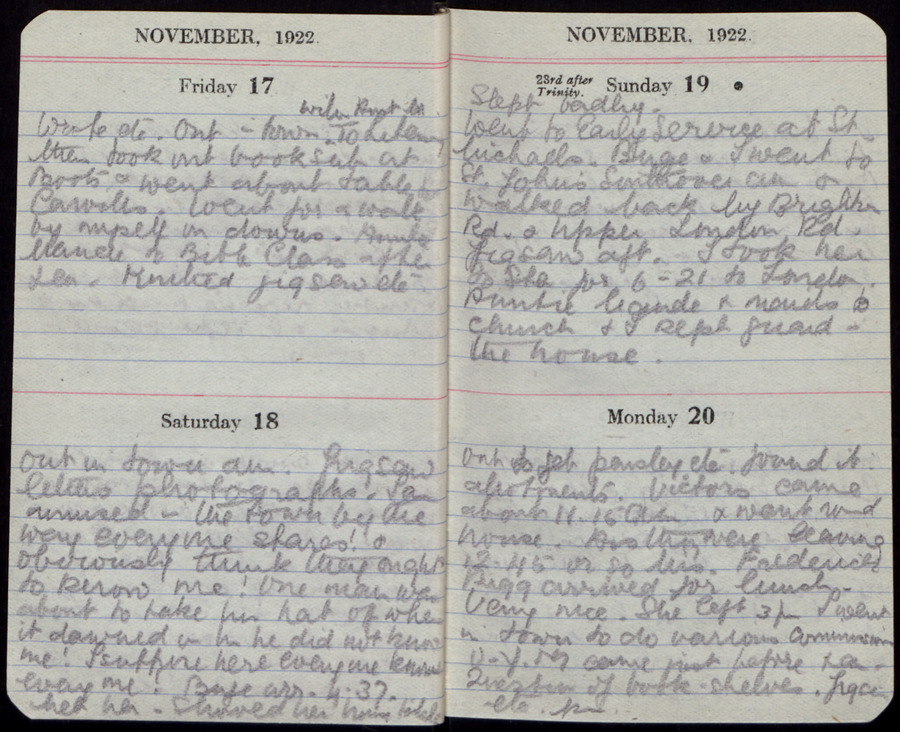 NOVEMBER, 1922.
Friday 17
with Aunt
Wrote etc. Out in town.
then took out book sub at
Boots & went about table
Carvills. Went for a walk
by myself on downs. Auntie
Maude to Bible Class after
tea. Finished jigsaw etc.
Saturday 18
Out in town am. Jigsaw
letters photographs. I am
amused in the town by the
way everyone stares! &
obviously think they ought
to know me! One man was
about to take his hat off when
it dawned on him he did not know
me! I suppose here everyone knows
everyone! Byge arr. 4.37.
met her. Showed her
NOVEMBER, 1922.
23rd after Trinity. Sunday 19
Slept badly.
Went to Early Service at St
Michaels. Byge & I went to
St. John's Southover am &
walked back by Brighton
Rd. & Upper London Rd.
Jigsaw aft. I took her
to Sta for 6-21 to London.
Auntie & maids to
church & I kept guard in
the house.
Monday 20
Out to get parsley etc. found it
allotments. Victors came
about 11.15 am & went round
house. As they were leaving
12.45 or so Mrs. Frederick
Bigg arrived for lunch.
Very nice. She left 3 pm I went
in town to do various commissions
came just before tea.
Question of book-shelves. Jigsaw
etc. pm.